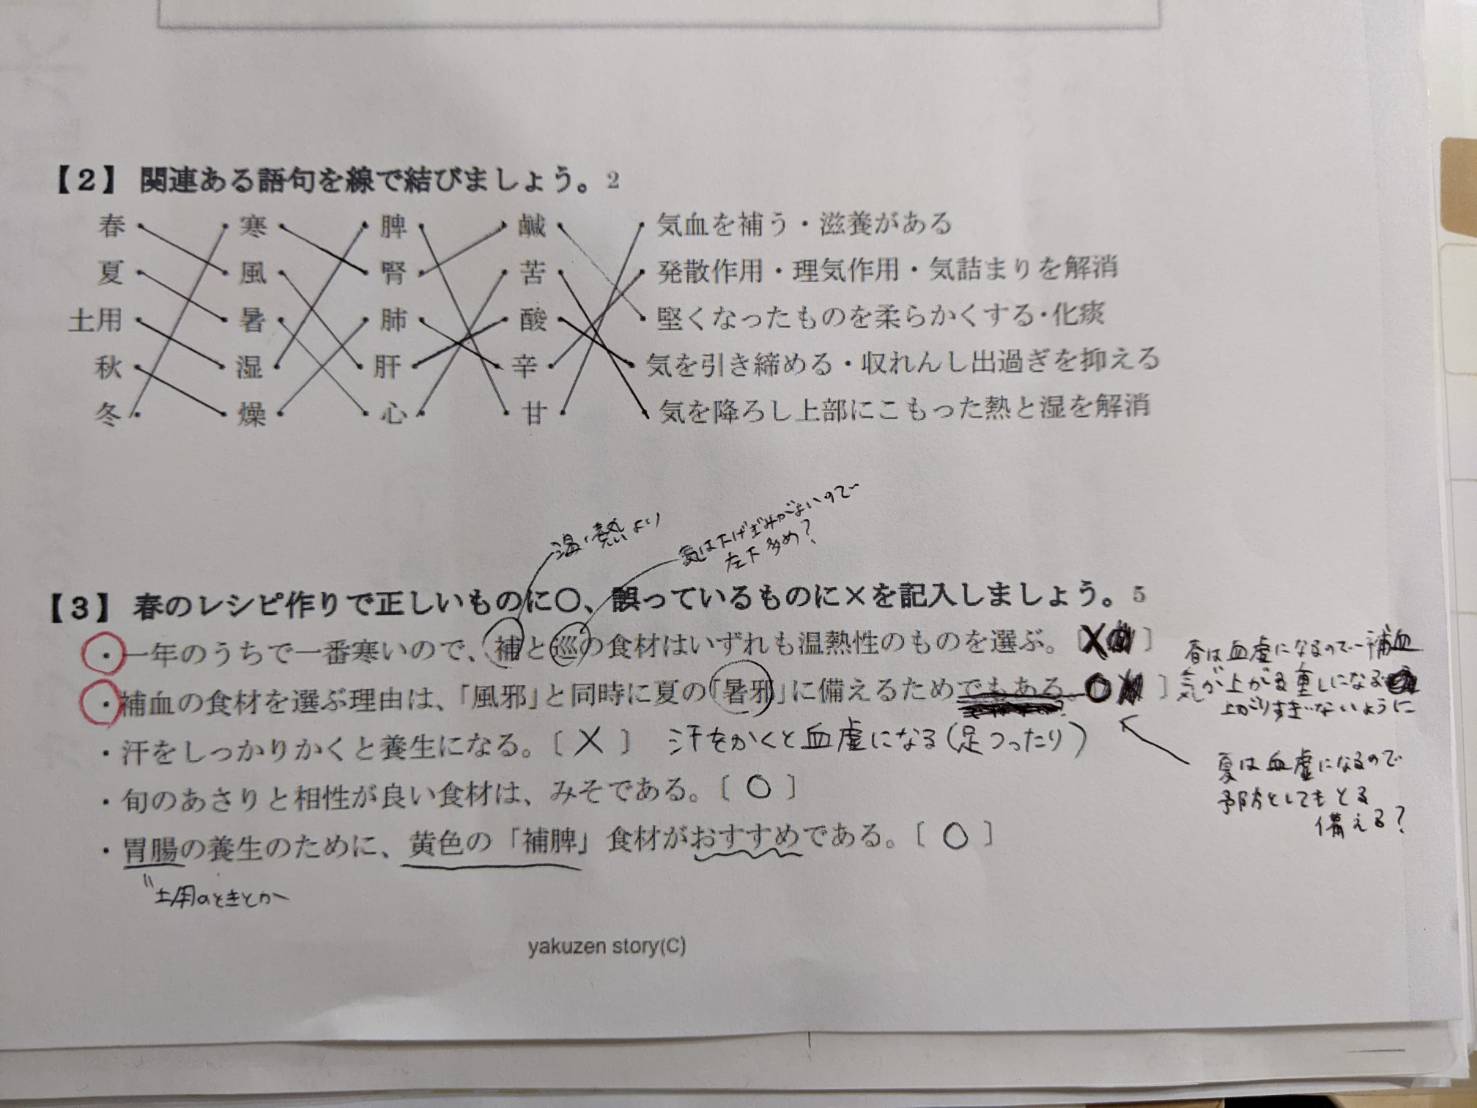 【2】 関連ある語句を線で結びましょう。2
春 寒 脾 鹹 気血を補う・滋養がある
夏 風 腎 苦 発散作用・理気作用・気詰まりを解消
土用 暑 肺 酸 堅くなったものを柔らかくする・化痰
秋 湿 肝 辛 気を引き締める・収れんし出過ぎを抑える
冬 燥 心 甘 気を降ろし上部にこもった熱と湿を解消
温・熱より
気は下げぎみがよいので
左下多め?
【3】 春のレシピ作りで正しいものに〇、誤っているものに×を記入しましょう。5
・一年のうちで一番寒いので、補と巡の食材はいずれも温熱性のものを選ぶ。〔X 〕
・補血の食材を選ぶ理由は、「風邪」と同時に夏の「暑邪」に備えるためでもある。〔〇 〕
春は血虚になるので補血
気が上がる重しになる
上がりすぎないように
・汗をしっかりかくと養生になる。〔 X 〕 汗をかくと血虚になる(足つったり)
夏は血虚になるので
予防としてもとる
備える?
・旬のあさりと相性が良い食材は、みそである。〔 〇 〕
・胃腸の養生のために、黄色の「補脾」食材がおすすめである。〔 〇 〕
〃土用のときとか
yakuzen story(C)